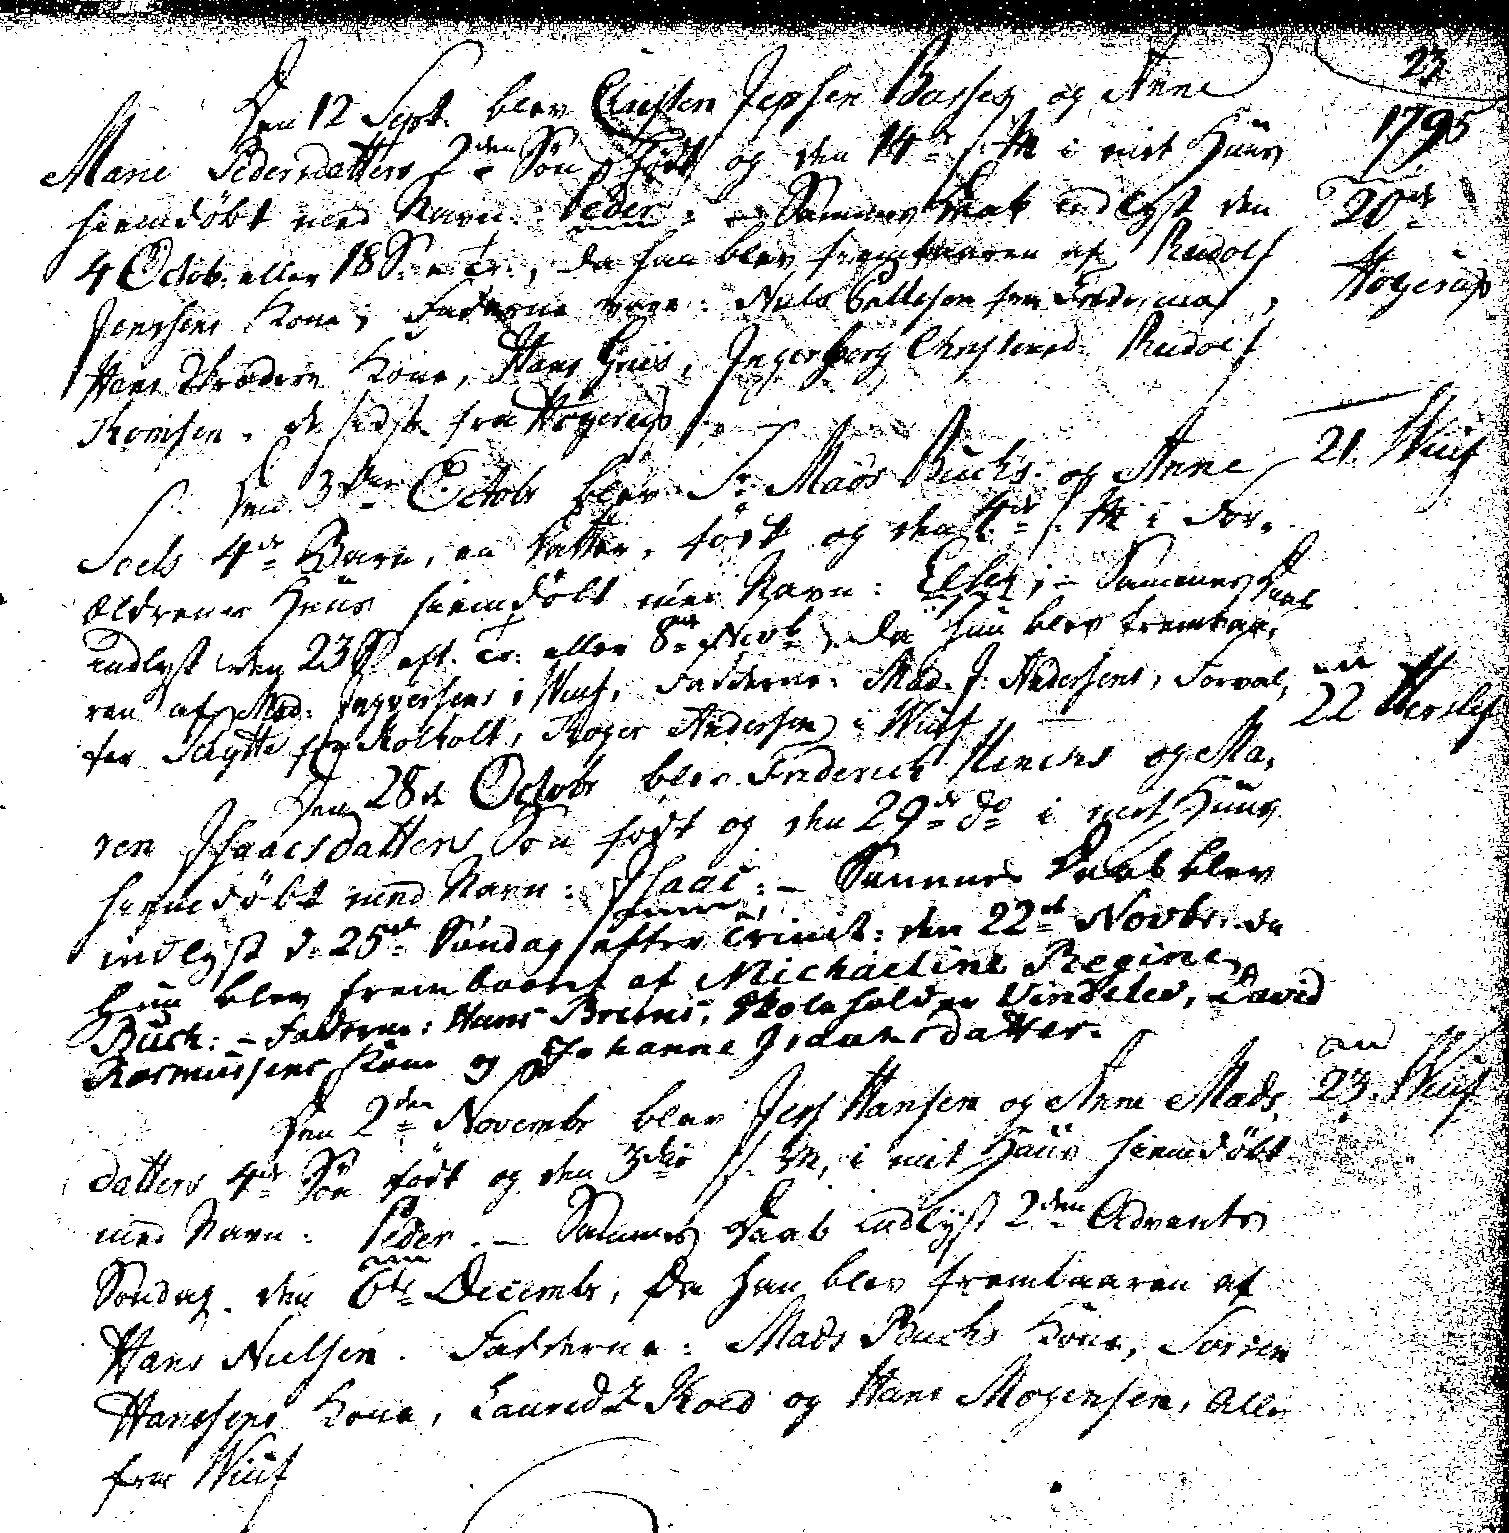 23
1795
Den 12 Sept. blev Christen Jepsen Basses og Anne
Marie Pedersdatters 2den Søn født og den 14de s. M. i mit Huus
hiemdøbt med Navn: Peder: – Sammes Daab indlyst den
20de
4 Octob. eller 18 S. e. Tr., da han blev frembaaren af Rudolf
Høgerup
Jenssens Kone; Fadderne vare: Niels Pallesen
Hans Kone, Hans Griis, Ingerborg Christensd. Rudolf
de sidste fra Høgerup
21. Wiuf
Den 3die Octob blev Sr. Mads Buchs og Anne
Seels 4de Barn, en Datter, født og den 4de s. M. i For-
ældrenes Huus hiemdøbt med Navn: Elsen; – Sammes Daab
indlyst den 23 S. eft. Tr. eller 8de Novb, da hun blev frembaa-
ren af Mad. Jespersens i Wiuf, Fadderne: Mad. J. Andersens, Forval-
ter Skytte fra Rolholt, Roger Andersen i Wiuf
22 Herslef
Den 28de Octobr blev Friderich Hinches og Ma-
ren Isaacsdatters Søn født og den 29de do i mit Huus
hiemdøbt med Navn: Isaac: – Sammes Daab blev
indlyst d. 25de Søndag efter Trinit: den 22de Novbr. da
hun blev frembaaret af Michaeline Regine
Buch: – Fadderne: Hans Bruns, Skoleholder Vindelev, David
Rasmussens Kone og Johanne Isaachsdatter.
23. Wiuf
Den 2den Novembr blev Jens Hansen og Anne Mads
datters 4de Søn født og den 3die s. M. i mit Huus hiemdøbt
med Navn: Peder. – Sammes Daab indlyst 2den Advents
Søndag den 6te Decembr, da han blev frembaaren af
Hans Nielsen. Fadderne: Mads Buchs Kone, Sørren
Hanssens Kone, Lauridz Koed og Hans Mogensen, alle
fra Wiuf